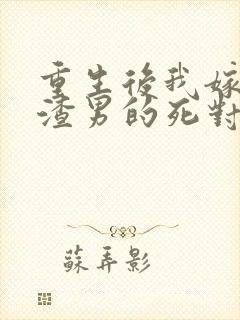 重生後我嫁
渣男的死對
蘇弄影